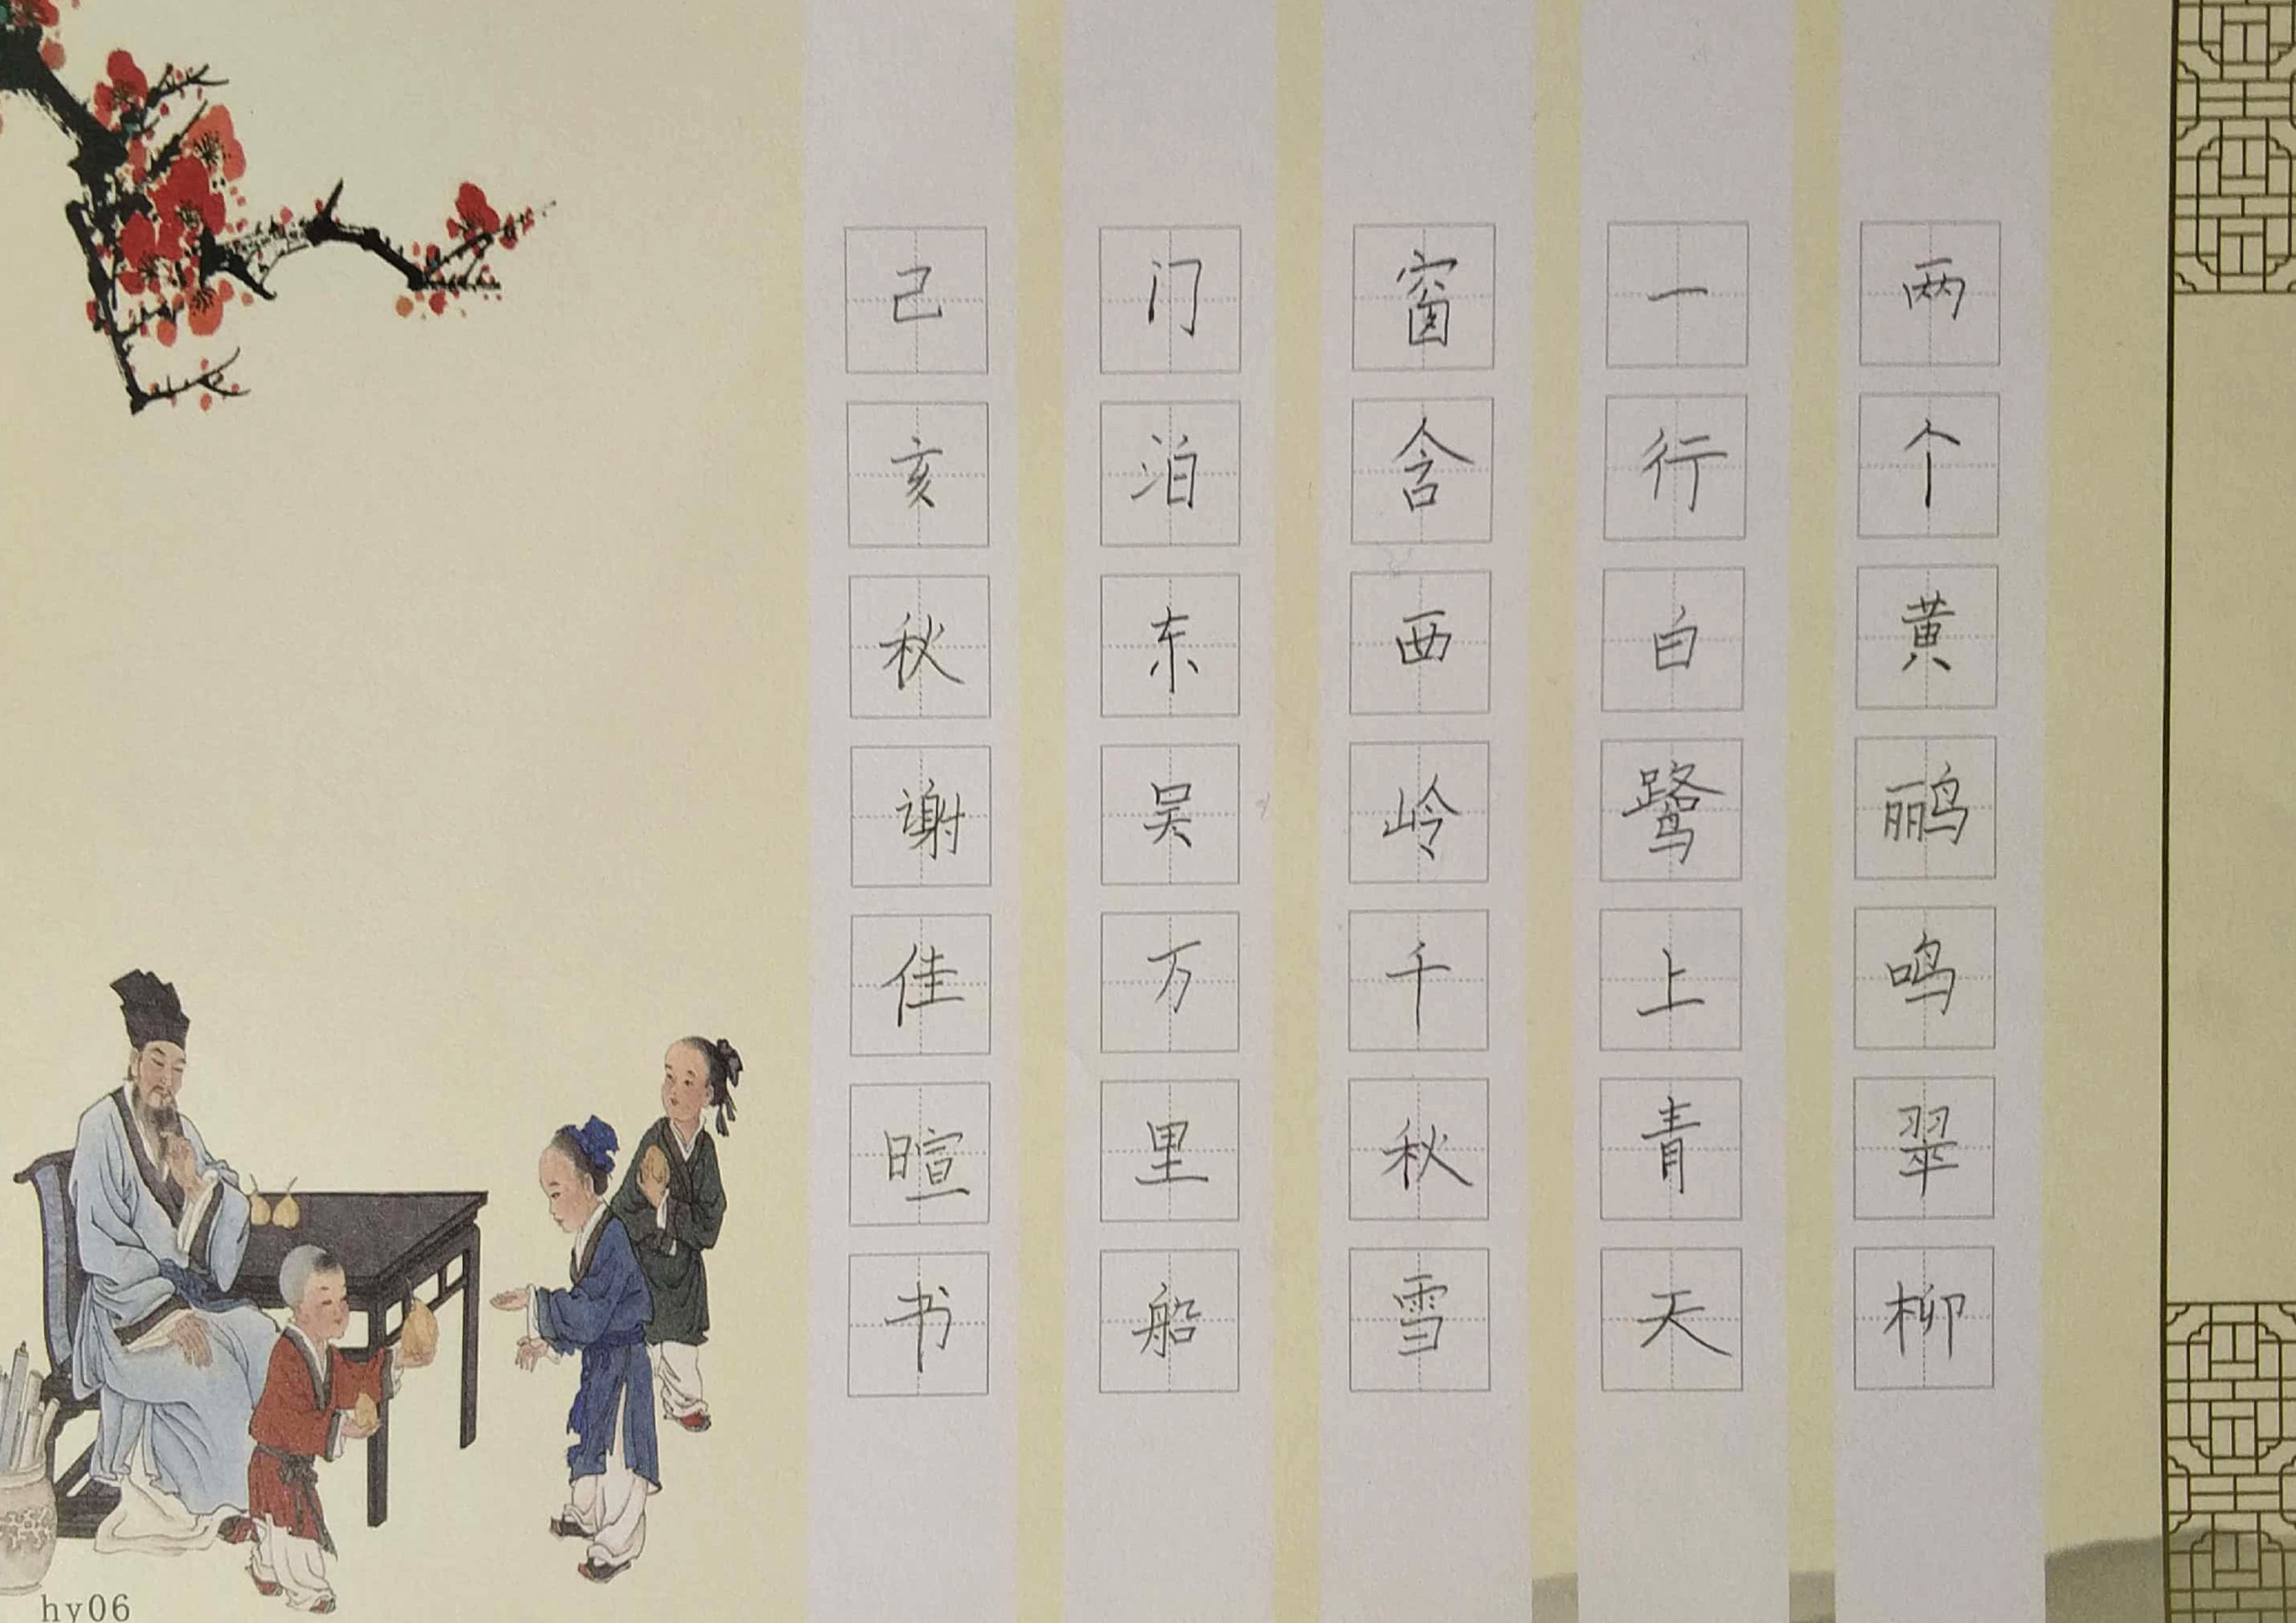 两个黄鹂鸣翠柳
一行白鹭上青天
窗含西岭千秋雪
门泊东吴万里船
己亥秋谢佳暄书
hy06